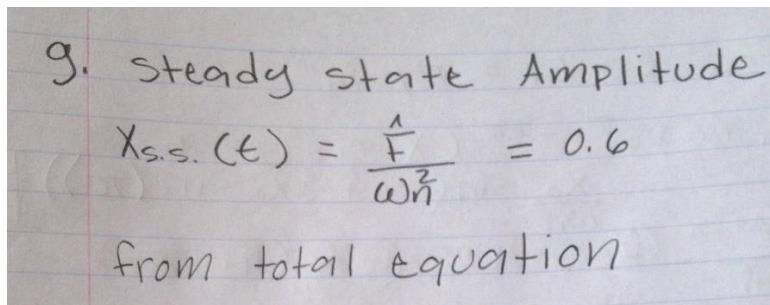 g. Steady state Amplitude
Xs.s. (t) = F̂ / ωn² = 0.6
from total equation